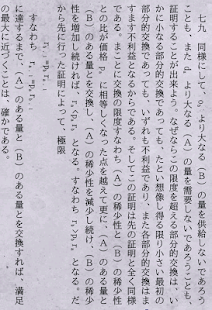 七九　同様にして、p_b より大なる（B）の量を供給しないであろう
ことも、また p_a より大なる（A）の量を需要しないであろうことも、
証明することが出来よう。なぜならこの限度を超える部分的交換は、い
かに小なる部分的交換であっても、たとい想像し得る限り小さい最初の
部分的交換であっても、いずれも不利益であり、また各部分的交換はま
すます不利益となるからである。そしてこの証明は先の証明と全く同様
である。まことに交換の限度すなわち（A）の稀少性と（B）の稀少性
との比が価格 p_a に相等しくなった点を越えて更に、（A）のある量と
（B）のある量とを交換し、（A）の稀少性を減少し続け、（B）の稀少
性を増加し続ければ、r_{a,1}＜p_a r_{b,1} となる。すなわち r_{b,1}＞p_b r_{a,1} となる。だ
から先に行った証明によって、極限
すなわち　r_{a,1}=p_a r_{b,1}
に達するまで、（A）のある量と（B）のある量とを交換すれば、満足
の最大に近づくことは、確かである。